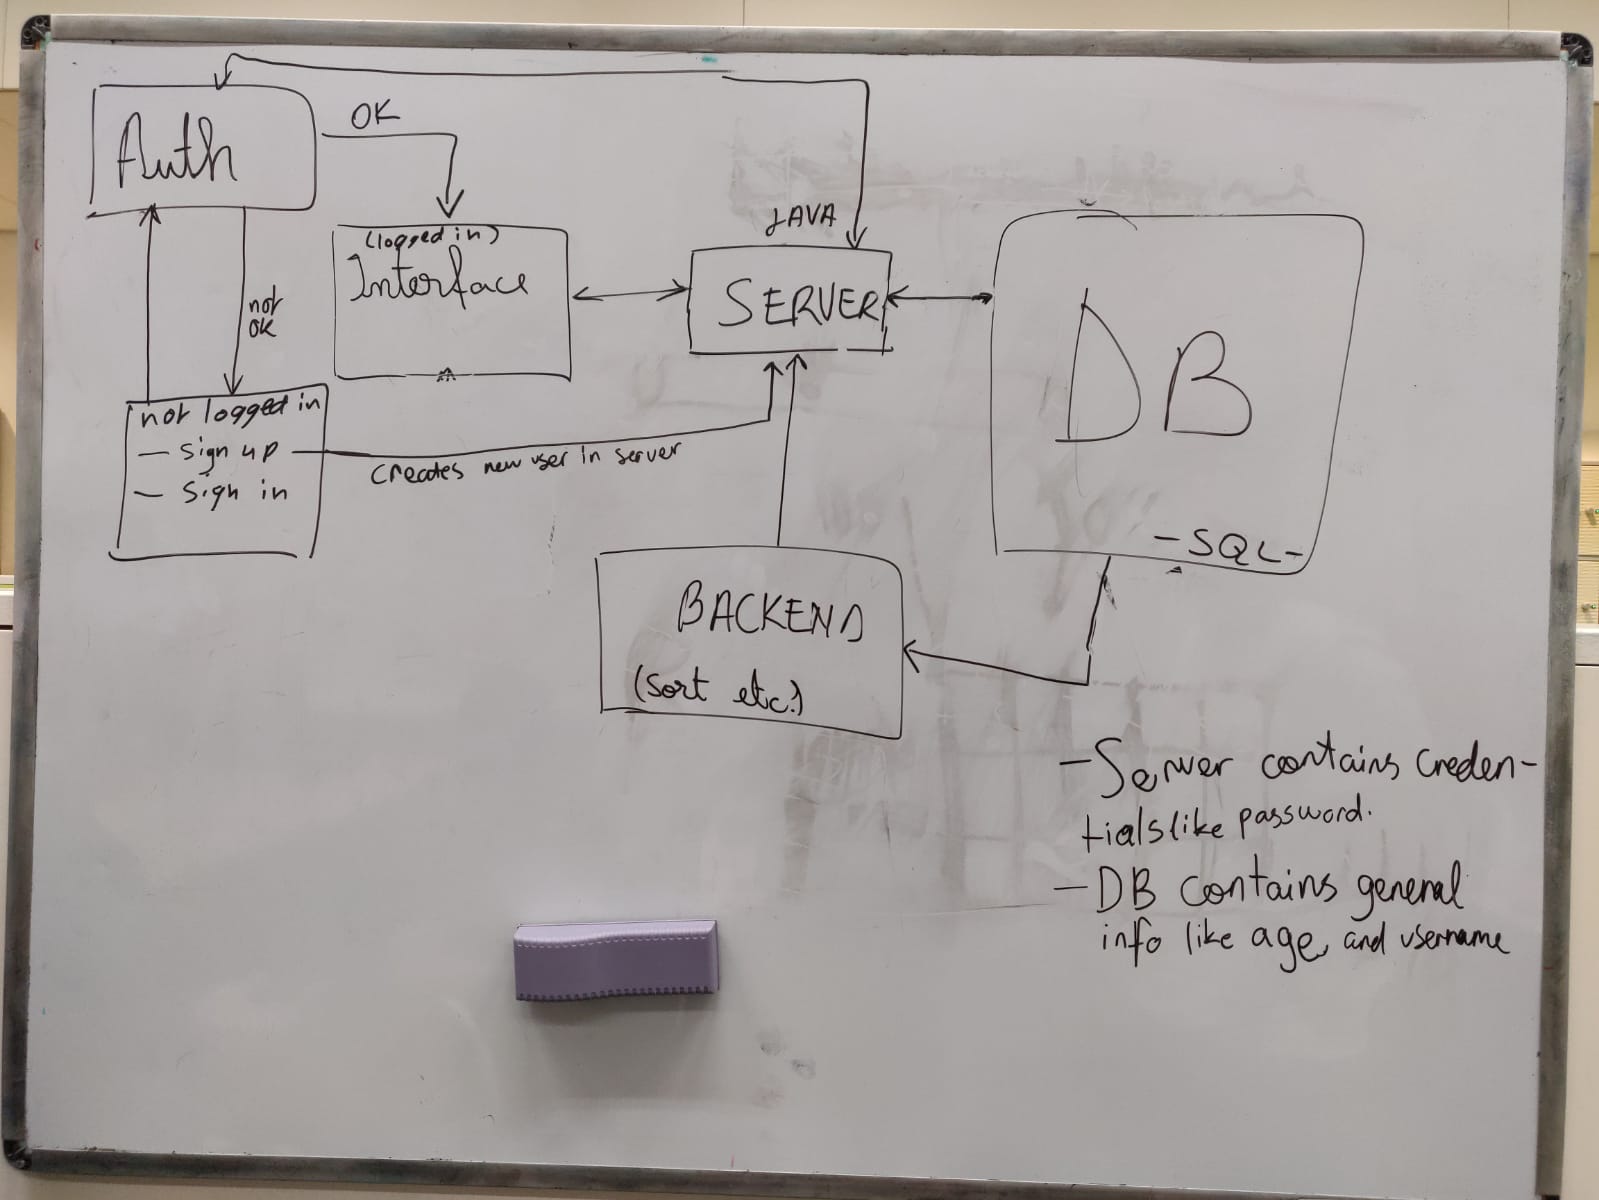 Auth
OK
not
OK
(logged in)
Interface
JAVA
SERVER
DB
-SQL-
not logged in
- sign up
- sign in
creates new user in server
BACKEND
(sort etc.)
-Server contains creden-
tials like password.
-DB contains general
info like age, and username